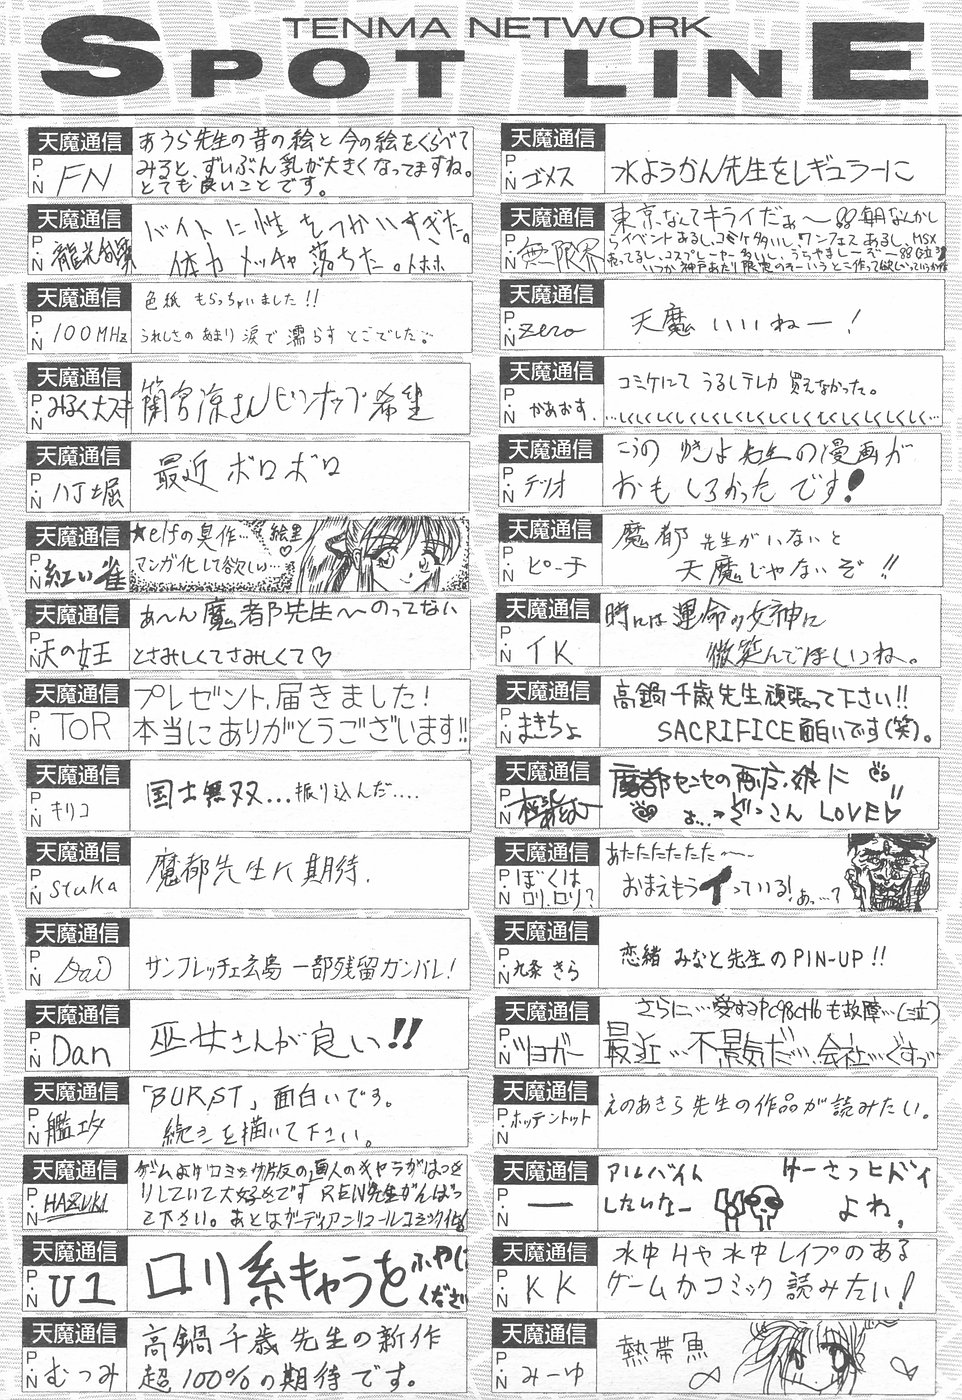 TENMA NETWORK
SPOT LINE
天魔通信
P.N FN
あうら先生の昔の絵と今の絵をくらべて
みると、ずいぶん乳が大きくなってますね。
とても良いことです。
天魔通信
P.N
バイトに性をつかいすぎた。
体力メッチャ落ちた。トホホ
天魔通信
P.N 100MHz
色紙もらっちゃいました!!
うれしさのあまり涙で濡らすとこでした
天魔通信
P.N みるく大スキ
蘭宮涼さんピンナップ希望
天魔通信
P.N 八丁堀
最近ボロボロ
天魔通信
P.N 紅い雀
★elfの臭作… 絵里♡
マンガ化して欲しい…
天魔通信
P.N 天の女王
あ〜ん魔都先生〜〜のってない
とさみしくてさみしくて♡
天魔通信
P.N TOR
プレゼント、届きました!
本当にありがとうございます!!
天魔通信
P.N キリコ
国士無双...振り込んだ....
天魔通信
P.N stuka
魔都先生に期待.
天魔通信
P.N
サンフレッチェ広島一部残留ガンバレ!
天魔通信
P.N Dan
巫女さんが良い!!
天魔通信
P.N 艦攻
「BURST」面白いです。
続きを描いて下さい。
天魔通信
P.N HAZUKI
ゲームよりコミック版の遊人のキャラがはっき
りしていて大好きです REN先生がんばっ
て下さい。あとはガーディアンリコールコミック化
天魔通信
P.N U1
ロリ系キャラをふやして
ください
天魔通信
P.N むつみ
高鍋千歳先生の新作
超100%の期待です。
天魔通信
P.N ゴメス
水ようかん先生をレギュラーに
天魔通信
P.N 無限界
東京なんてキライだぁ〜 毎日なんかし
らイベントあるし、コミケ多いし、ワンフェスあるし、MSX
売ってるし、コスプレーヤー多いし、うらやましーぞー
いつか神戸あたり限定のそーいうとこ作って欲しい
天魔通信
P.N zero
天魔いいねー!
天魔通信
P.N かあおす.
コミケにてうるしテレカ買えなかった。
…しくしくしくしくしくしくしくしくしくしくしく…
天魔通信
P.N テリオ
こうのゆきよ先生の漫画が
おもしろかったです!
天魔通信
P.N ピーチ
魔都先生がいないと
天魔じゃないぞ!!
天魔通信
P.N IK
時には運命の女神に
微笑んでほしいね。
天魔通信
P.N まきちょ
高鍋千歳先生頑張って下さい!!
SACRIFICE面白いです(笑)。
天魔通信
P.N
魔都センセの 娘に
ぞっこん LOVE♡
天魔通信
P.N ぼくは
ロリ.ロリ?
あたたたたたた〜〜
おまえもうイっている! あ…て
天魔通信
P.N 九条きら
恋緒みなと先生のPIN-UP!!
天魔通信
P.N ツヨガー
さらに…愛するPC98CH6も故障…(泣)
最近…不景気だ…会社…ぐすっ
天魔通信
P.N ホッテントット
えのあきら先生の作品が読みたい。
天魔通信
P.N 一
アルバイト
したいなー
けーさつヒドイ
よね。
天魔通信
P.N KK
水中Hや水中レイプのある
ゲームかコミック読みたい!
天魔通信
P.N みーゆ
熱帯魚